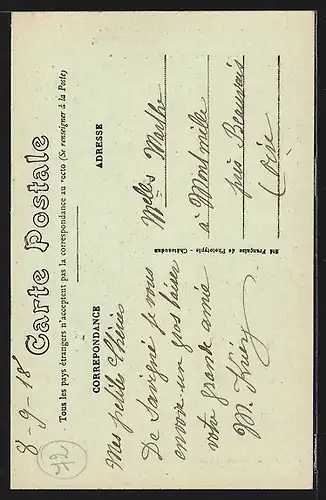 8-9-18
Carte Postale
Tous les pays étrangers n'acceptent pas la correspondance au recto (Se renseigner à la Poste)
CORREPONDANCE
Mes petites Chéries
De Savigné je vous
envoie un gros baiser
votre grande amie
M.
72
Sté Française de Phototypie - Châteaudun
ADRESSE
Melles Marthe
à Montmille
près Beauvais
(Oise